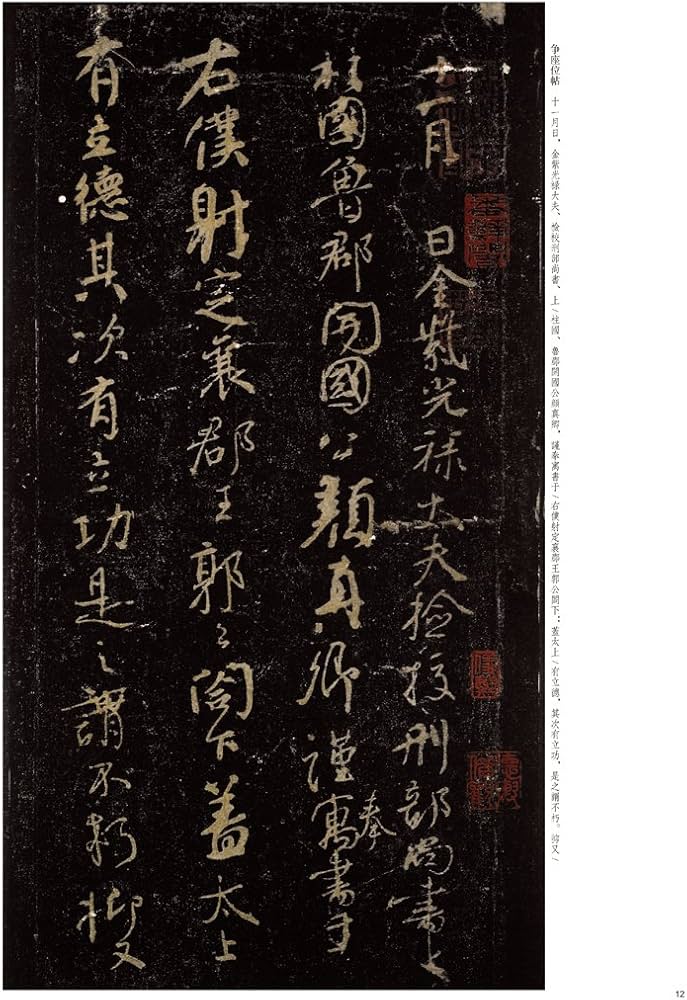 争座位帖 十一月日，金紫光祿大夫、檢校刑部尚書、上\柱國、魯郡開國公顏真卿，謹奉寓書于\右僕射定襄郡王郭公閤下：蓋太上\有立德，其次有立功，是之謂不朽。抑又\
十一月 日金紫光祿大夫檢校刑部尚書上
柱國魯郡開國公顏真卿謹奉寓書于
右僕射定襄郡王郭公閤下蓋太上
有立德其次有立功是之謂不朽抑又
12